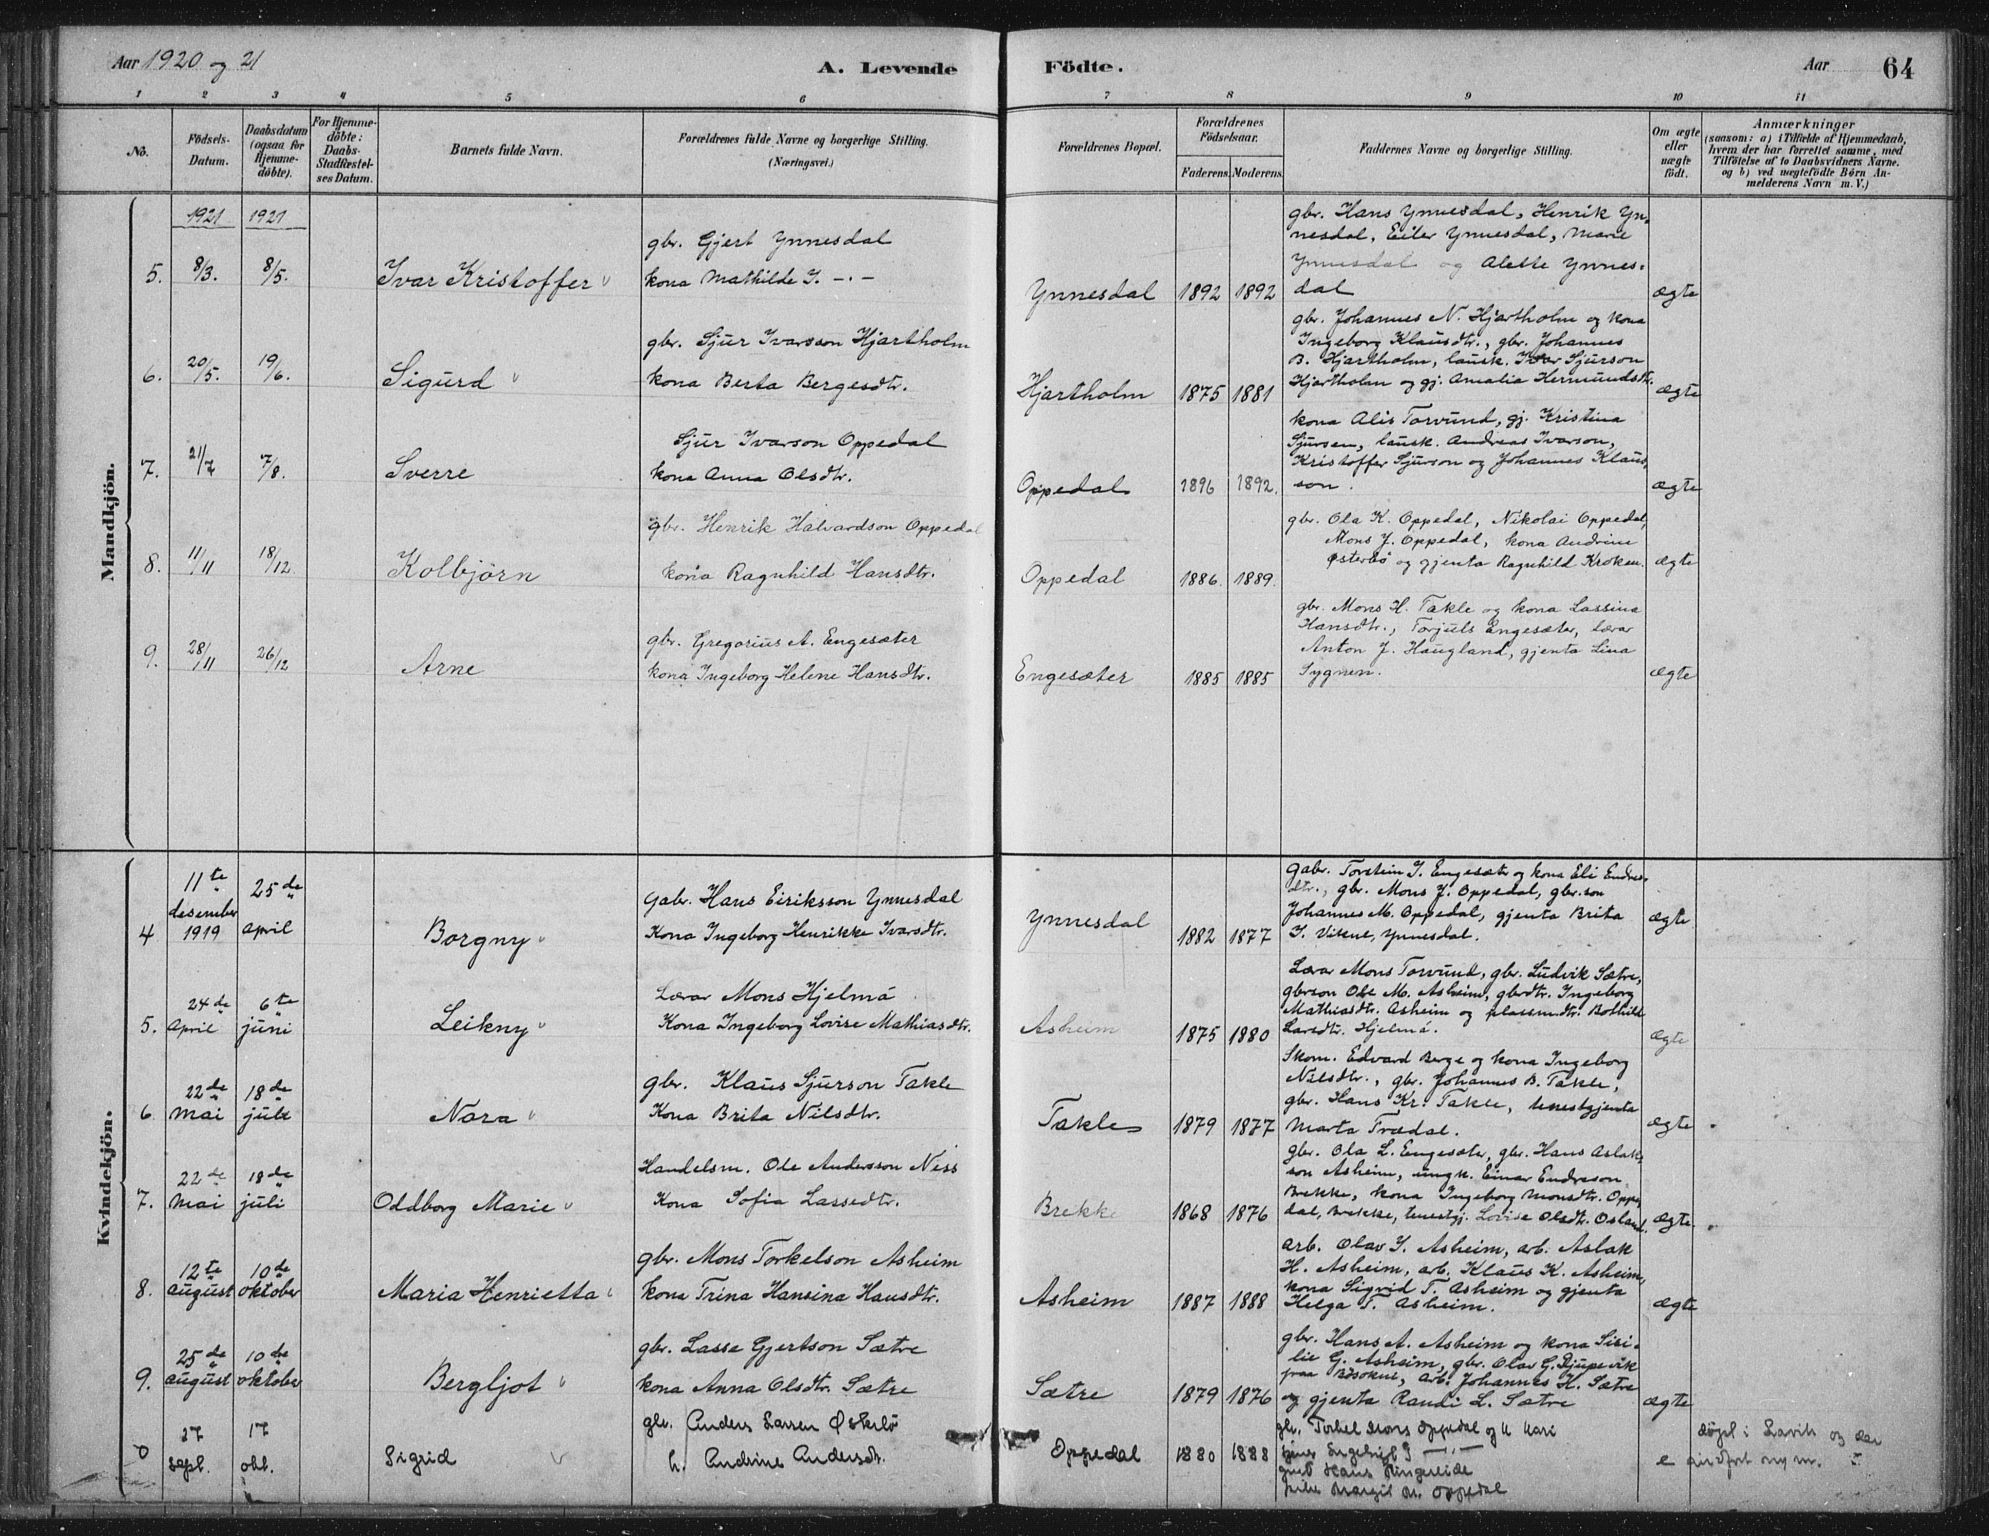 Aar 1920 og 21
A. Levende Födte.
Aar
64
1 2 3 4 5 6 7 8 9 10 11
No.
Födsels-Datum.
Daabsdatum (ogsaa for Hjemme-döbte).
For Hjemme-döbte: Daabs-Stadfæstel-ses Datum.
Barnets fulde Navn.
Forældrenes fulde Navne og borgerlige Stilling. (Næringsvei.)
Forældrenes Bopæl.
Forældrenes Födselsaar.
Faderens. Moderens.
Faddernes Navne og borgerlige Stilling.
Om ægte eller uægte födt.
Anmærkninger
(saasom: a) i Tilfælde af Hjemmedaab,
hvem der har forrettet samme, med
Tilföielse af to Daabsvidners Navne.
og b) ved uægtefödte Börn An-
melderens Navn m. V.)
Mandkjön.
1921 1921
5. 8/3. 8/5. Ivar Kristoffer
gbr. Gjert Ynnesdal
kona Mathilde I. -.-
Ynnesdal 1892 1892
gbr. Hans Ynnesdal, Henrik Yn-
nesdal, Eiler Ynnesdal, Marie
Ynnesdal og Alette Ynnes-
dal
ægte
6. 20/5. 19/6. Sigurd
gbr. Sjur Ivarsson Hjartholm
kona Berta Bergesdtr.
Hjartholm 1875 1881
gbr. Johannes N. Hjartholm og kona
Ingeborg Klausdtr., gbr. Johannes
B. Hjartholm, lausk. Ivar Sjurson
Hjartholm og gj. Amalia Hermundsdtr.
ægte
7. 21/7 7/8. Sverre
Sjur Ivarson Oppedal
kona Anna Olsdtr.
Oppedal 1896 1892.
kona Alis Torvund, gj. Kristina
Sjursen, lausk. Andreas Ivarson,
Kristoffer Sjurson og Johannes Klaus-
son.
ægte
8. 11/11 18/12 Kolbjörn
gbr. Henrik Halvardson Oppedal
kona Ragnhild Hansdtr.
Oppedal 1886. 1889.
gbr. Ola K. Oppedal, Nikolai Oppedal,
Mons J. Oppedal, kona Andrine
Østerbö og gjenta Ragnhild Kroken.
ægte
9. 28/11 26/12 Arne
gbr. Gregorius A. Engesæter
kona Ingeborg Helene Hansdtr.
Engesæter 1885 1885
gbr. Mons H. Takle og kona Lassina
Hansdtr., Torjuls Engesæter, lærar
Anton J. Haugland, gjenta Lina
Sygnen.
ægte
Kvindekjön.
4 11te desember 1919 25de april Borgny
Gabr. Hans Eiriksson Ynnesdal
Kona Ingeborg Henrikke Ivarsdtr.
Ynnesdal 1882 1877
Gabr. Torstein I. Engesæter og kona Eli Endres-
dtr., gbr. Mons J. Oppedal, gbr.son
Johannes M. Oppedal, gjenta Brita
I. Ynnesdal.
ægte
5. 24de April 6te juni Leikny
Lærar Mons Hjelmå
Kona Ingeborg Lovise Mathiasdtr.
Asheim 1875 1880
Lærar Mons Torvund, gbr. Ludvik Sætre,
gbrson Ole M. Asheim, gbrdtr. Ingeborg
Mathiasdtr. Asheim og plassmdtr. Bothild
Larsdtr. Hjelmå.
ægte
6 22de Mai 18de juli Nora
gbr. Klaus Sjurson Takle
Kona Brita Nilsdtr.
Takle 1879 1877
Skom. Edvard Berge og kona Ingeborg
Nilsdtr., gbr. Johannes B. Takle,
gbr. Hans Kr. Takle, tenestgjenta
Marta Trædal.
ægte
7. 22de Mai 18de juli Oddborg Marie
Handelsm. Ole Andersson Ness
Kona Sofia Lassedtr.
Brekke 1868 1876
gbr. Ola L. Engesæter, gbr. Hans Aslak-
son Asheim, ungk. Einar Endreson
Brekke, kona Ingeborg Monsdtr. Oppe-
dal, Brekke, tenestgj. Lovise Olsdtr. Osland.
ægte
8. 12te august 10de oktober Maria Henrietta
gbr. Mons Torkelson Asheim
kona Trina Hansina Hansdtr.
Asheim 1887 1888
arb. Olav I. Asheim, arb. Aslak
H. Asheim, arb. Klaus K. Asheim,
kona Sigrid T. Asheim og gjenta
Helga T. Asheim.
ægte
9. 25de august 10de oktober Bergljot
gbr. Lasse Gjertson Sætre
kona Anna Olsdtr. Sætre
Sætre 1879 1876
gbr. Hans A. Asheim og kona Sisi-
lie G. Asheim, gbr. Olav G. Djupevik
fraa arb. Johannes H. Sætre
og gjenta Randi L. Sætre
ægte
0 27 sept. 17 okt. Sigrid
gbr. Anders Larsen Østerbö
h. Andrine Andersdt.
Oppedal 1880 1888
gbr. Torkel Mons Oppedal og k Kari
Hans Ringereide
Margit M. Oppedal
e
döypt i Lavik og